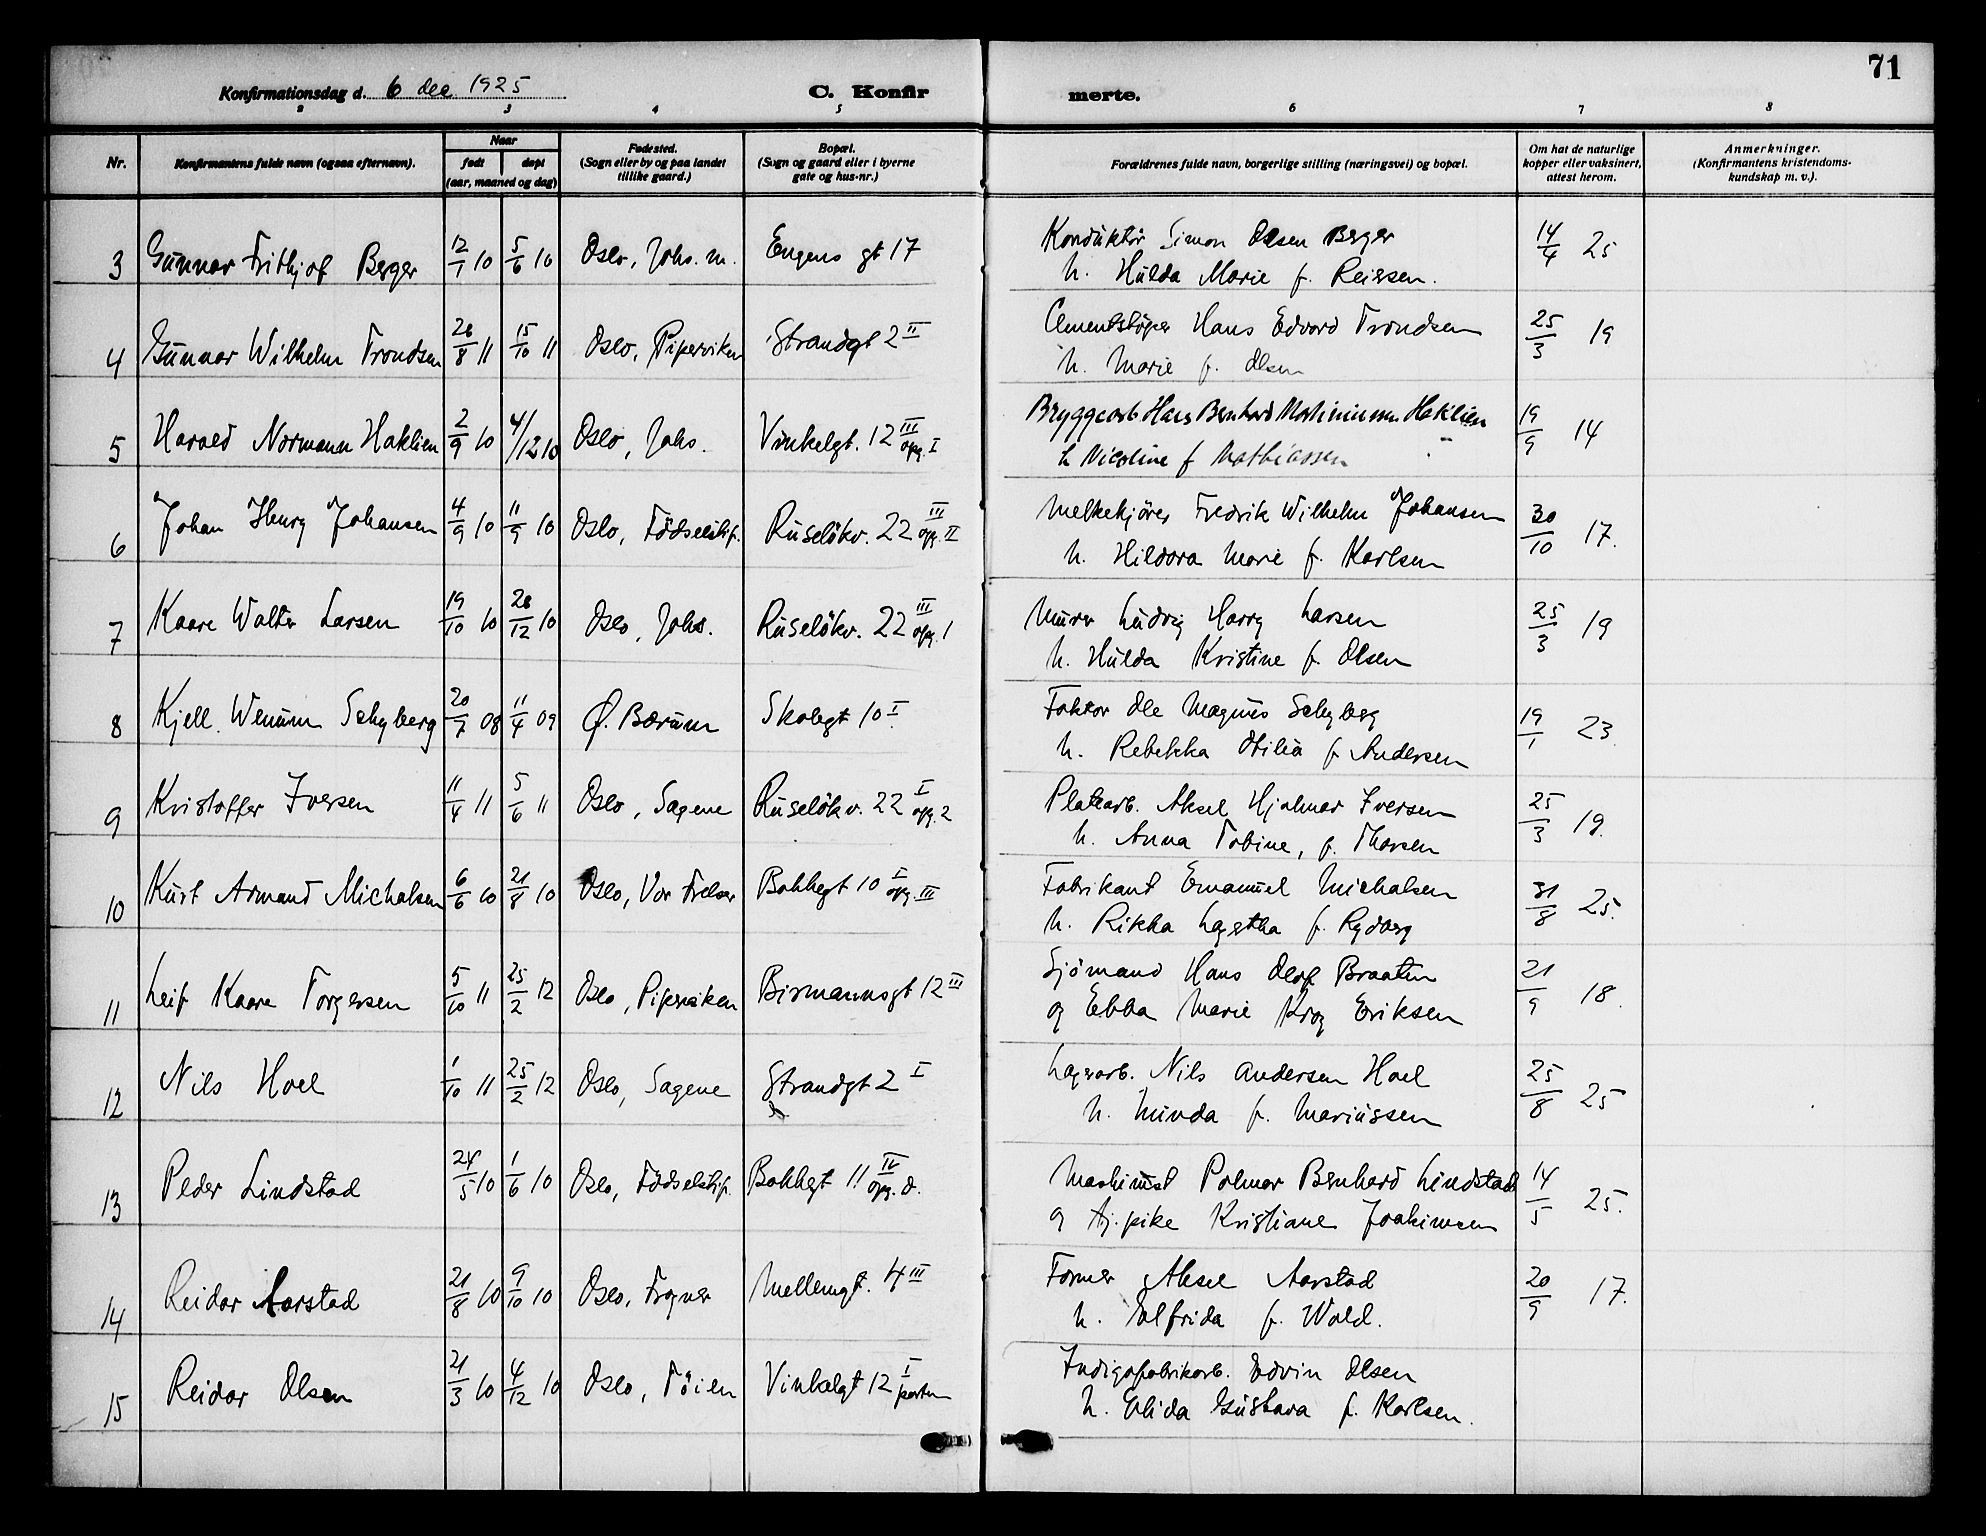 71
Konfirmationsdag d. 6 dec 1925 C. Konfir merte.
2 3 4 5 6 7 8
Nr. Konfirmantens fulde navn (ogsaa efternavn). Naar født døpt (aar, maaned og dag) Fødested. (Sogn eller by og paa landet tillike gaard.) Bopæl. (Sogn og gaard eller i byerne gate og hus-nr.) Forældrenes fulde navn, borgerlige stilling (næringsvei) og bopæl. Om hat de naturlige kopper eller vaksinert, attest herom. Anmerkninger. (Konfirmantens kristendoms-kundskap m. v.).
3 Gunnar Frithjof Berger 12/1 10 5/6 10 Oslo, Johs. m. Engens gt 17 Konduktør Simon Olsen Berger 14/4 25
h. Hulda Marie f. Reiersen.
4 Gunnar Wilhelm Trondsen 28/8 11 15/10 11 Oslo, Piperviken Strandgt 2 II Cementstøper Hans Edvard Trondsen 25/3 19
h. Marie f. Olsen
5 Harald Normann Haklien 2/9 10 4/12 10 Oslo, Johs. Vinkelgt. 12 III opg. I Bryggearb. Hans Bernhard Haklien 19/9 14
h Nicoline f Mathiassen
6 Johan Henry Johansen 4/9 10 11/9 10 Oslo, Födselstif. Ruselökv. 22 III opg. II Melkekjörer Fredrik Wilhelm Johansen 30/10 17.
h. Hildora Marie f. Karlsen
7 Kaare Walter Larsen 19/10 10 28/12 10 Oslo, Johs. Ruselökv. 22 III opg. 1 Murer Ludvig Harry Larsen 25/3 19
h. Hulda Kristine f. Olsen
8 Kjell Wenum Schyberg 20/7 08 11/4 09 Ø. Bærum Skolegt 10 I Faktor Ole Magnus Schyberg 19/1 23
h. Rebekka Otilia f Andersen
9 Kristoffer Iversen 11/4 11 5/6 11 Oslo, Sagene Ruselökv. 22 I opg. 2 Platearb. Aksel Hjalmar Iversen 25/3 19.
h. Anna Tobine, f. Thorsen
10 Kurt Armand Michalsen 6/6 10 21/8 10 Oslo, Vor Frelser Bakkegt 10 I opg. III Fabrikant Emanuel Michalsen 31/8 25.
h. Rikka f. Rydberg
11 Leif Kaare Torgersen 5/10 11 25/2 12 Oslo, Piperviken Birmannsgt 12 III Sjömand Hans Olaf Braaten 21/9 18.
og Ebba Marie Krog Eriksen
12 Nils Hoel 1/10 11 25/2 12 Oslo, Sagene Strandgt 2 I Lagerarb. Nils Andersen Hoel 25/8 25
h. Minda f. Mariussen
13 Peder Lindstad 24/5 10 1/6 10 Oslo, Födselstif. Bakkegt 11 IV opg. Maskinist Palmar Bernhard Lindstad 14/5 25.
og tj. pike Kristiane Joakimsen
14 Reidar Aarstad 21/8 10 9/10 10 Oslo, Frogner Mellemgt. 4 III Former Aksel Aarstad 20/9 17.
h. Alfrida f. Wold.
15 Reidar Olsen 21/3 10 4/12 10 Oslo, Töien Vinkelgt 12 I Indigofabrikarb. Edvin Olsen
h. Elida Gustava f. Karlsen.